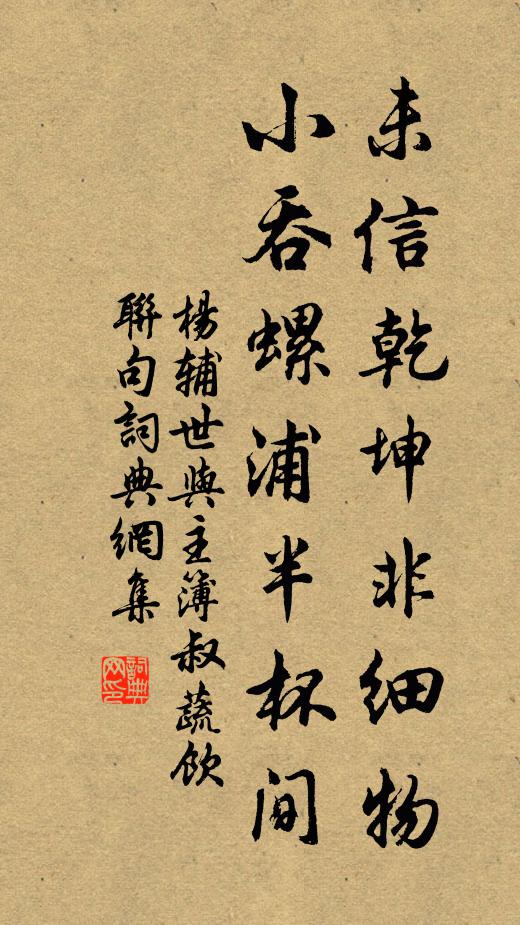 未信乾坤非细物
小吞螺浦半杯间
楊辅世與主簿叔蔬飲
聯句詞典網集
詞典
网印